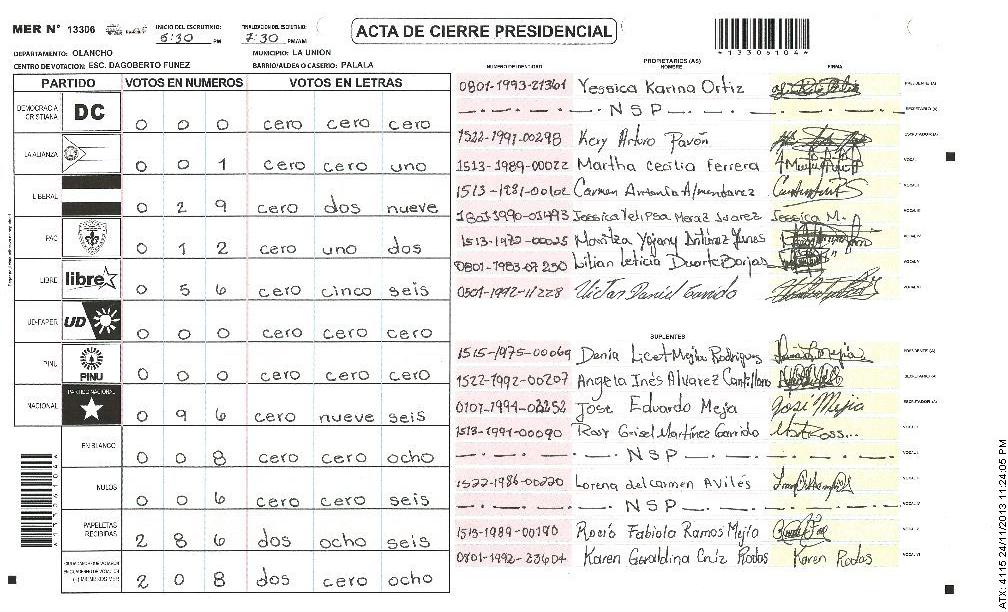 MER N° 13306
INICIO DEL ESCRUTINIO: 5:30 PM
FINALIZACION DEL ESCRUTINIO: 7:30 PM/AM
ACTA DE CIERRE PRESIDENCIAL
DEPARTAMENTO: OLANCHO
MUNICIPIO: LA UNION
CENTRO DE VOTACION: ESC. DAGOBERTO FUNEZ
BARRIO/ALDEA O CASERIO: PALALA
PARTIDO VOTOS EN NUMEROS VOTOS EN LETRAS
DEMOCRACIA CRISTIANA DC 0 0 0 cero cero cero
LA ALIANZA 0 0 1 cero cero uno
LIBERAL 0 2 9 cero dos nueve
PAC 0 1 2 cero uno dos
LIBRE libre 0 5 6 cero cinco seis
UD-FAPER UD 0 0 0 cero cero cero
PINU PINU 0 0 0 cero cero cero
NACIONAL PARTIDO NACIONAL 0 9 6 cero nueve seis
EN BLANCO 0 0 8 cero cero ocho
NULOS 0 0 6 cero cero seis
PAPELETAS RECIBIDAS 2 8 6 dos ocho seis
2 0 8 dos cero ocho
*13306104*
PROPIETARIOS (AS)
NUMERO DE IDENTIDAD NOMBRE FIRMA
0801-1993-21361 Yessica Karina Ortiz PRESIDENTE (A)
NSP SECRETARIO (A)
1522-1991-00298 Kery Arturo Pavón
1513-1989-00022 Martha Cecilia Ferrera
Carmen Antonia Almendarez
Jessica M.
Lilian Leticia Duarte Borjas
0501-1992-11228 Victor Daniel Garrido
SUPLENTES
1515-1975-00069 Denia Licet Mejia Rodriguez PRESIDENTE (A)
1522-1992-00207 Angela Inés Alvarez SECRETARIO (A)
Jose Eduardo Mejia José Mejia
1513-1991-00090 Rosy Grisel Martínez Garrido
NSP
1522-1986-00220 Lorena del carmen Avilés
NSP
1513-1989-00190 Rocío Fabiola Ramos Mejia
0801-1992-23604 Karen Geraldina Cruz Rodas Karen Rodas
ATX: 4115 24/11/2013 11:24:05 PM